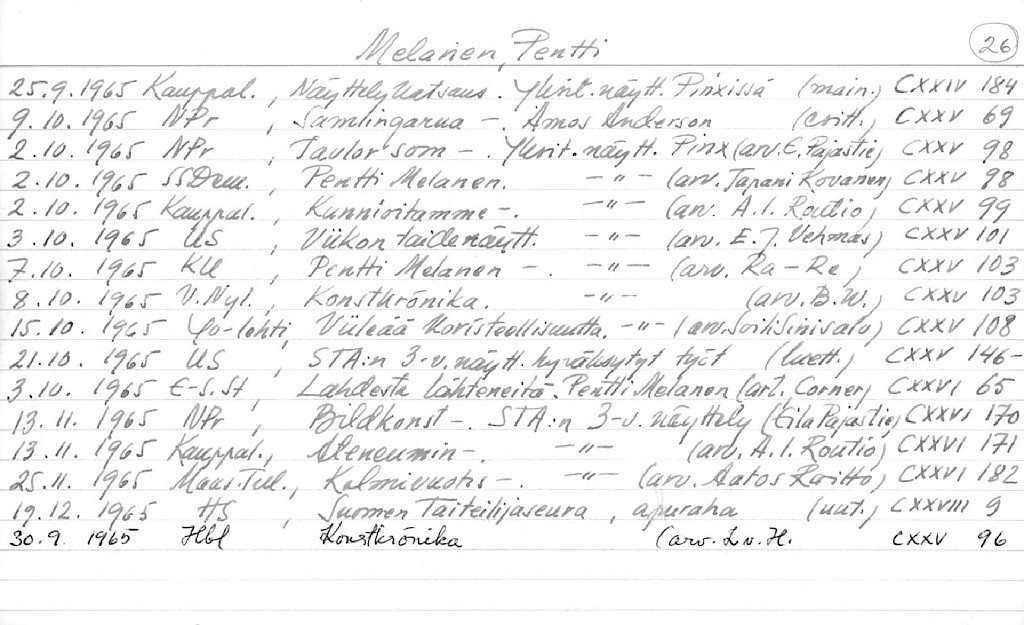 Melanen, Pentti 26
25.9.1965 Kauppal., Näyttelykatsaus. Yksit.näytt. Pinxissä (main.) CXXIV 184
9.10.1965 NPr, Samlingarna -. Amos Anderson (critt.) CXXV 69
2.10.1965 NPr, Tavlor som -. Yksit.näytt. Pinx (arv. E. Pajastie) CXXV 98
2.10.1965 SSDem., Pentti Melanen. -"- (arv. Tapani Kovanen) CXXV 98
2.10.1965 Kauppal., Kunnioitamme -. -"- (arv. A.I. Routio) CXXV 99
3.10.1965 US, Viikon taidenäytt. -"- (arv. E.J. Vehmas) CXXV 101
7.10.1965 KU, Pentti Melanen -. -"- (arv. Ra-Re) CXXV 103
8.10.1965 V.Nyl., Konstkrönika. -"- (arv. B.W.) CXXV 103
15.10.1965 Yo-lehti, Viileää koristeellisuutta. -"- (arv. Soili Sinisalo) CXXV 108
21.10.1965 US, STA:n 3-v. näytt. hyväksytyt työt (luett.) CXXV 146-
3.10.1965 E-S.St, Lahdesta lähteneitä. Pentti Melanen (art. Corner) CXXVI 65
13.11.1965 NPr, Bildkonst -. STA:n 3-v. näyttely (Eila Pajastie) CXXVI 170
13.11.1965 Kauppal., Ateneumin -. -"- (arv. A.I. Routio) CXXVI 171
25.11.1965 Maas.Tul., Kolmivuotis -. -"- (arv. Aatos) CXXVI 182
19.12.1965 HS, Suomen Taiteilijaseura, apuraha (uut.) CXXVIII 9
30.9.1965 Hbl Konstkrönika (arv. L.v.H. CXXV 96